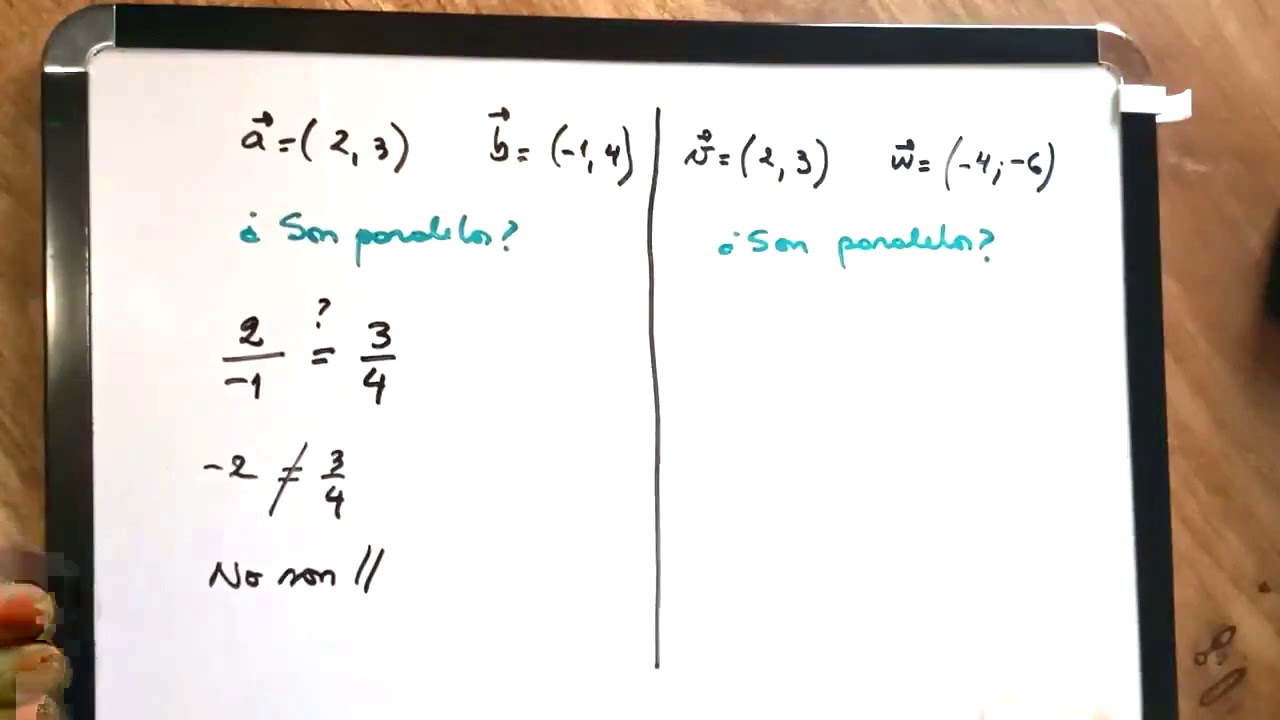 a⃗=(2,3) b⃗=(-1,4)
¿Son paralelos?
2/-1 ?= 3/4
-2 ≠ 3/4
No son //
v⃗=(2,3) w⃗=(-4,-6)
¿Son paralelos?